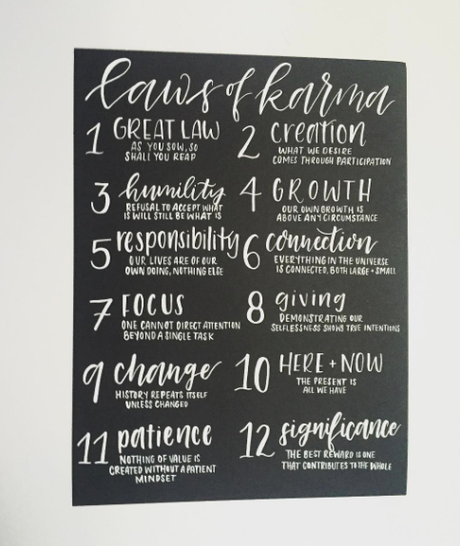 laws of karma
1 GREAT LAW
AS YOU SOW, SO
SHALL YOU REAP
2 creation
WHAT WE DESIRE
COMES THROUGH PARTICIPATION
3 humility
REFUSAL TO ACCEPT WHAT
IS WILL STILL BE WHAT IS
4 GROWTH
OUR OWN GROWTH IS
ABOVE ANY CIRCUMSTANCE
5 responsibility
OUR LIVES ARE OF OUR
OWN DOING, NOTHING ELSE
6 connection
EVERYTHING IN THE UNIVERSE
IS CONNECTED, BOTH LARGE + SMALL
7 FOCUS
ONE CANNOT DIRECT ATTENTION
BEYOND A SINGLE TASK
8 giving
DEMONSTRATING OUR
SELFLESSNESS SHOWS TRUE INTENTIONS
9 change
HISTORY REPEATS ITSELF
UNLESS CHANGED
10 HERE + NOW
THE PRESENT IS
ALL WE HAVE
11 patience
NOTHING OF VALUE IS
CREATED WITHOUT A PATIENT
MINDSET
12 significance
THE BEST REWARD IS ONE
THAT CONTRIBUTES TO THE WHOLE